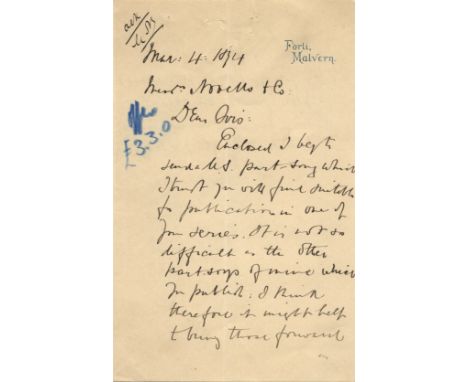 ack
Forli,
Malvern.
Mar: 4. 1894
Messrs Novello & Co:
Dear Sirs:
£3.3.0
Enclosed I beg to
send a M.S. part-song which
I trust you will find suitable
for publication in one of
your series. It is not so
difficult as the other
part songs of mine which
you publish: I think
therefore it might help
to bring those forward